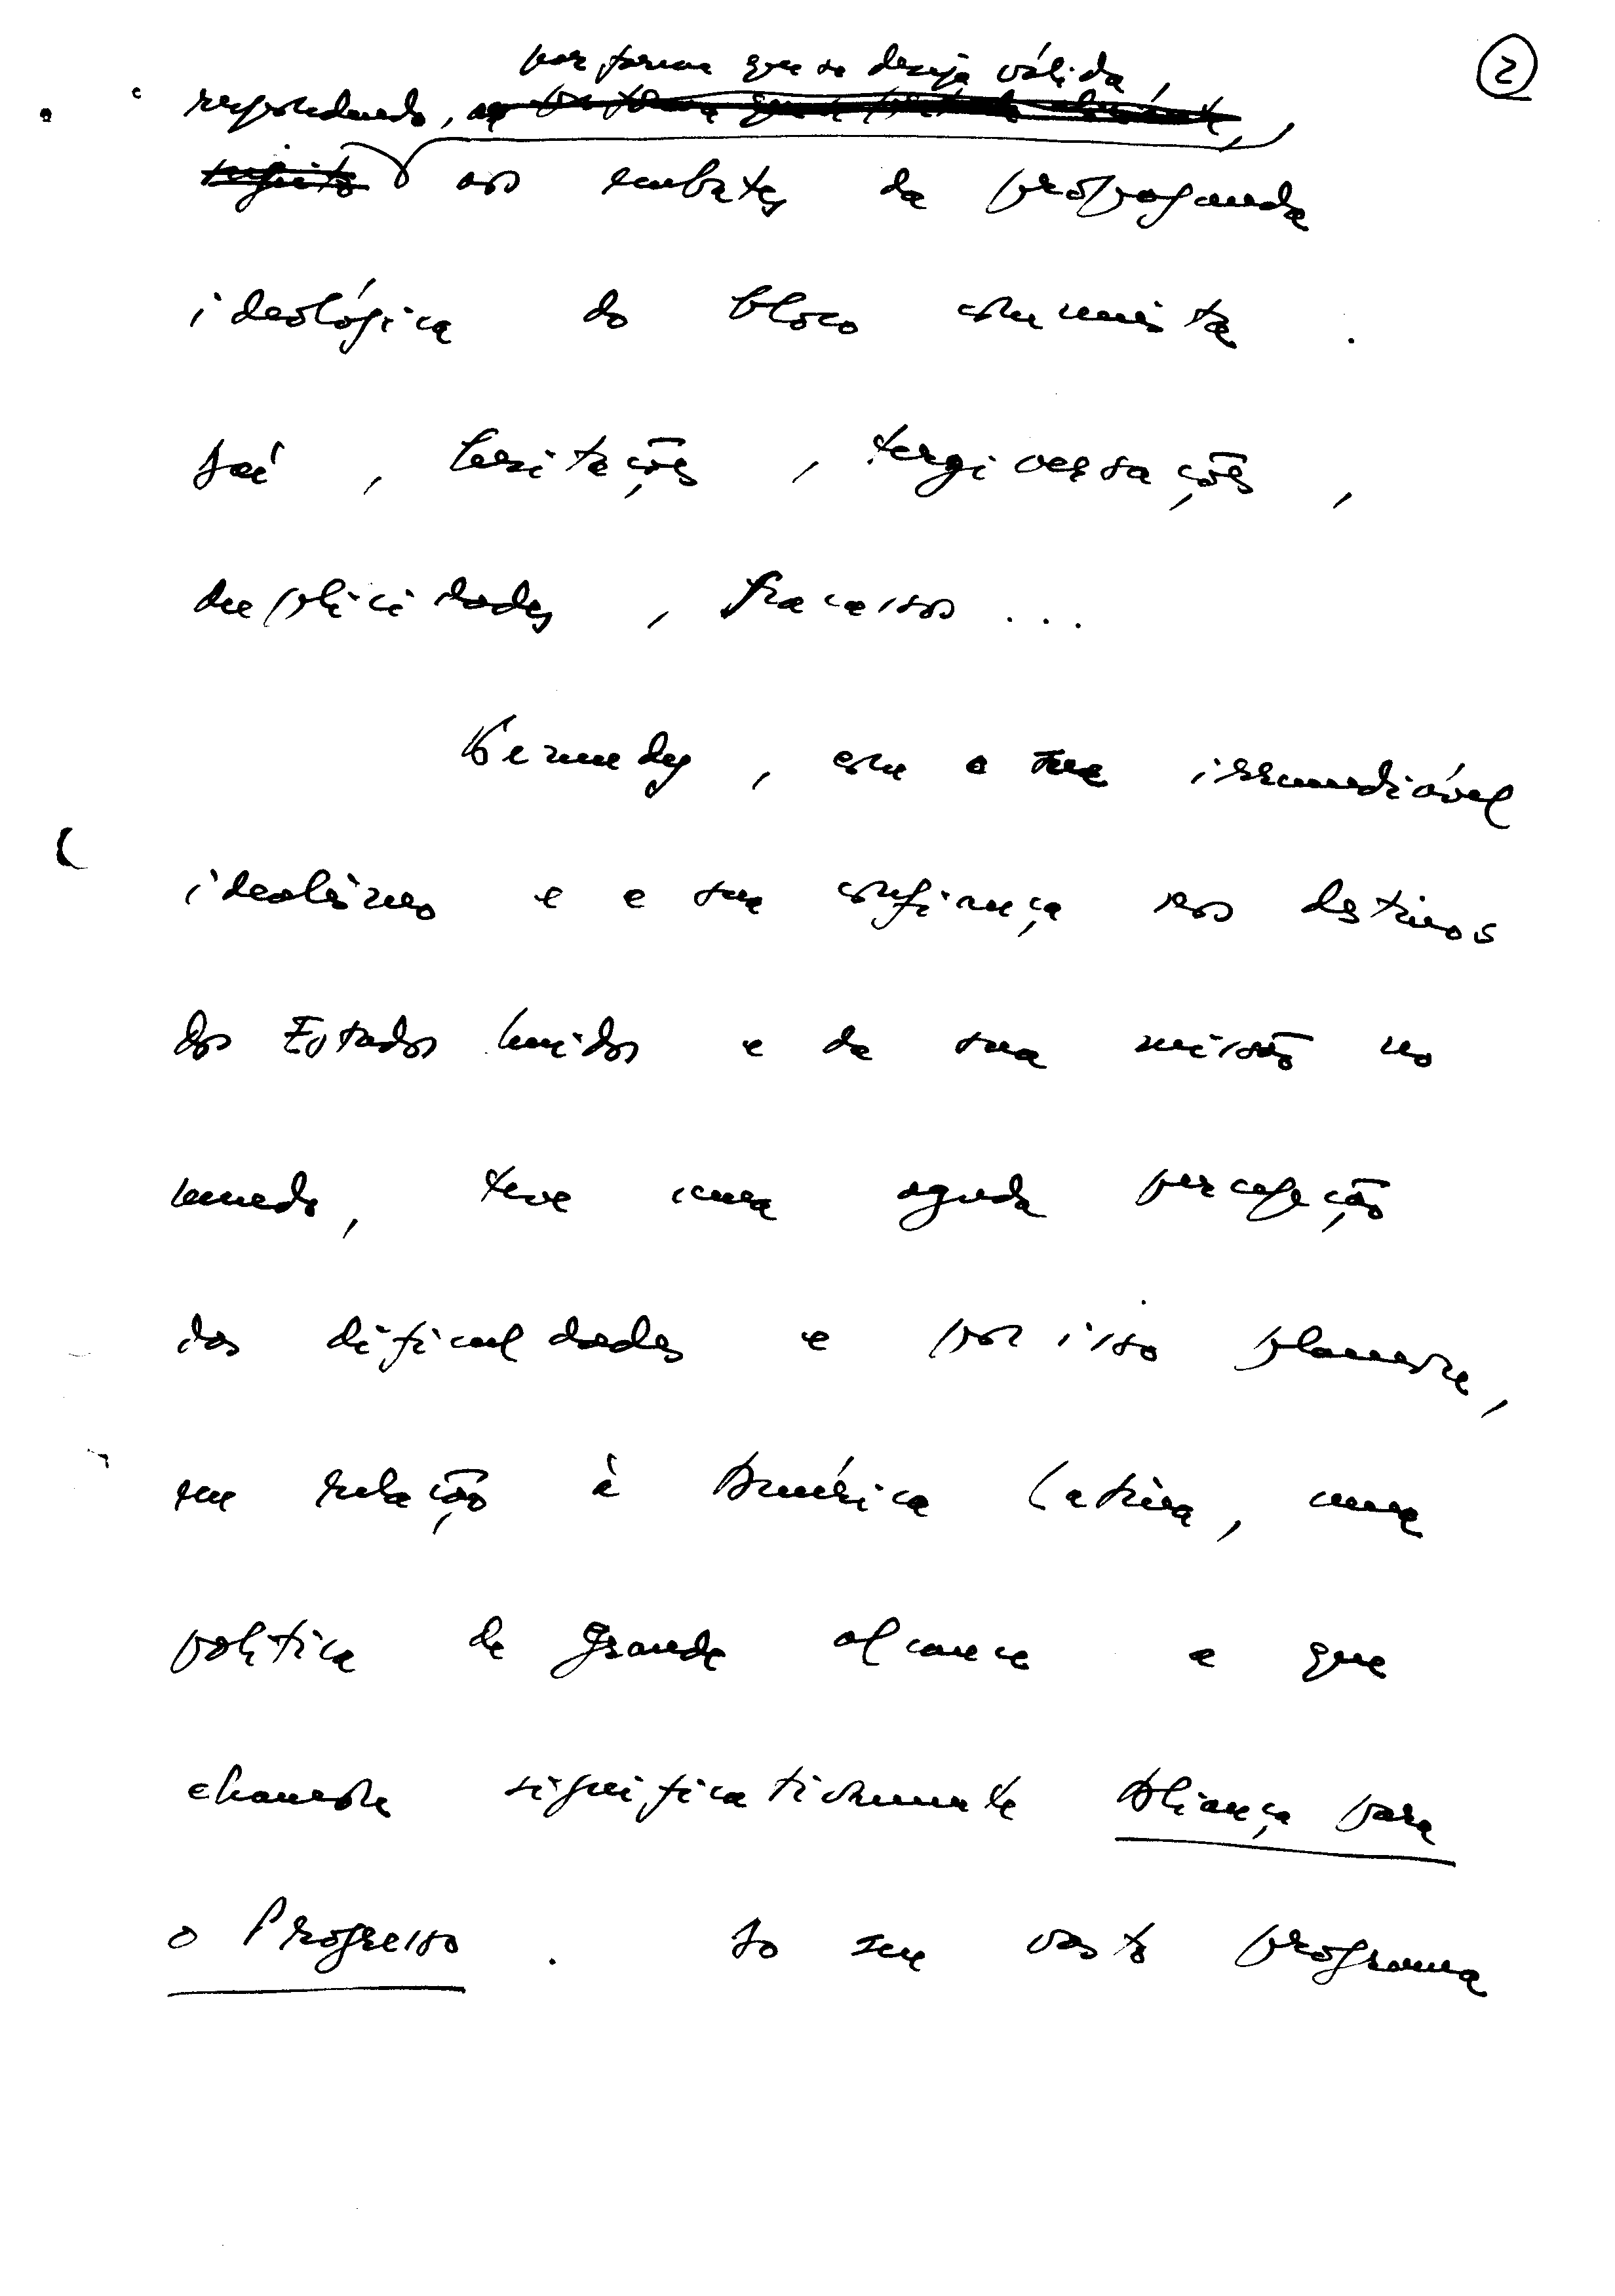 2
por forma que se deseja válida,
respondendo,
aos embates da propaganda
ideológica do bloco comunista.
Daí, hesitações, tergiversações,
duplicidades, fracassos...
Kennedy, com a sua irremediável
idealismo e a sua confiança nos destinos
dos Estados Unidos e da sua missão no
mundo, teve uma aguda percepção
das dificuldades e por isso planeara,
em relação à América Latina, uma
política de grande alcance e que
chamara significativamente Aliança para
o Progresso. Ao seu vasto programa